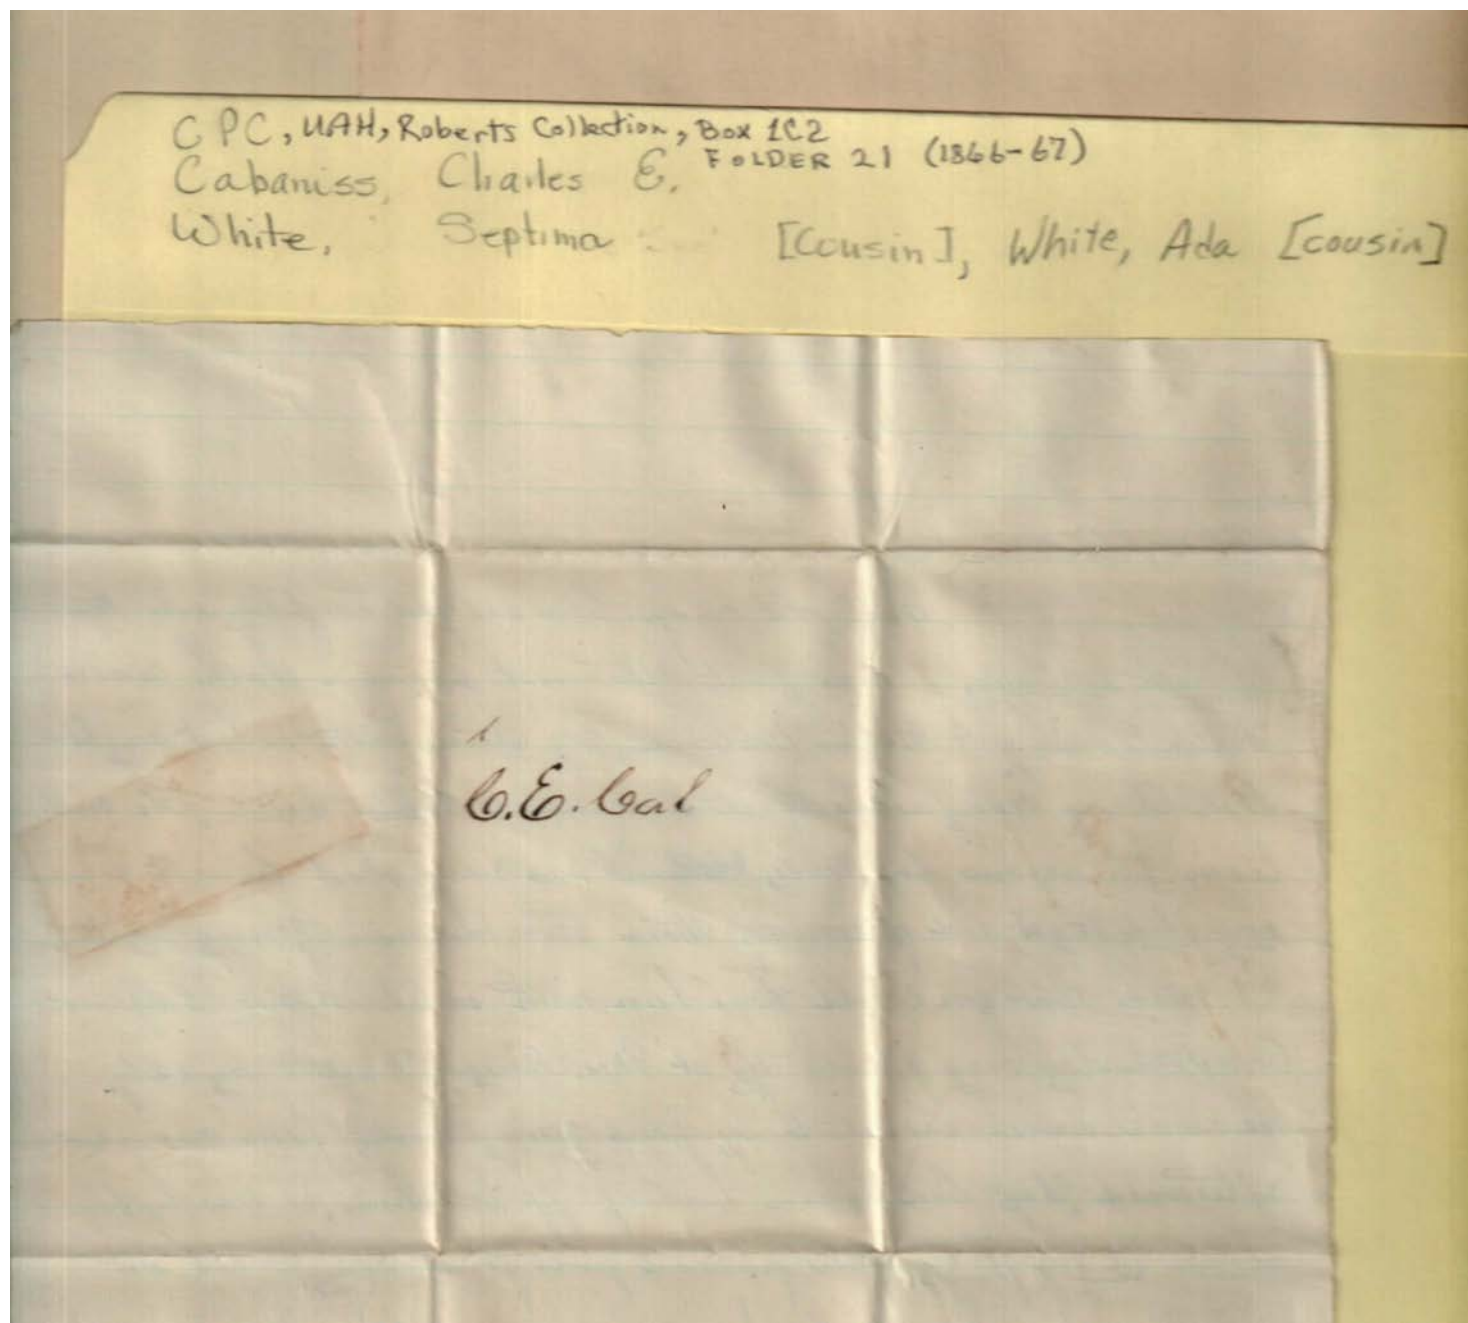 CPC, UAH, Roberts Collection, Box 1C2
FOLDER 21 (1866-67)
Cabaniss, Charles E.
White, Septima [Cousin], White, Ada [cousin]
C.E. Cal